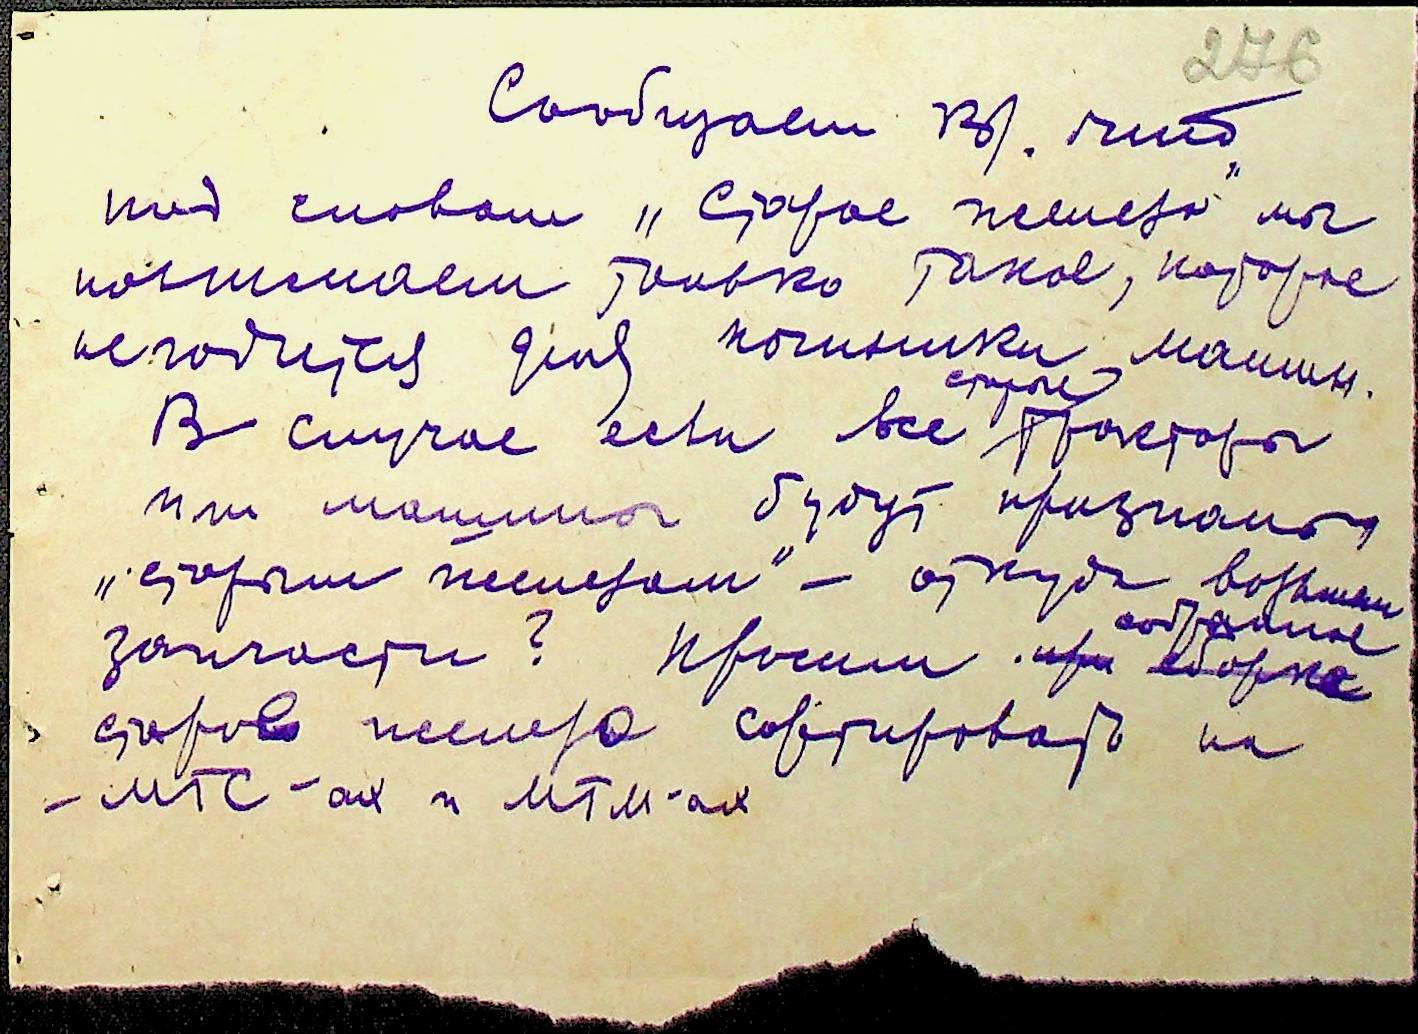 276
Сообщаем В/. что
под словом „Старое железо" мы
понимаем только такое, которое
не годится для починки машин.
В случае если все старые тракторы
или машины будут признаны
„старым железом" – откуда возьмем
запчасти? Просим при сборке собранное
старое железо сортировать на
– МТС-ах и МТМ-ах